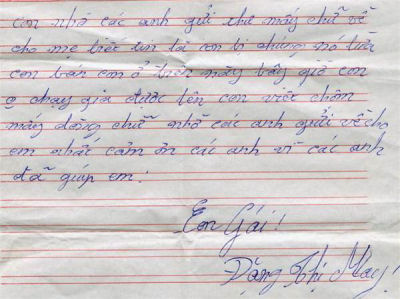 con nhờ các anh gửi thư mấy chữ về
cho mẹ biết tin là con bị chúng nó lừa
con bán con ở trên này bây giờ con
o chạy gia được lên con viết chôm
mấy dòng chữ nhờ các anh gửi về cho
em nhất cảm ơn các anh vì các anh
đã giúp em!
Em Gái!
Đặng Thị May!